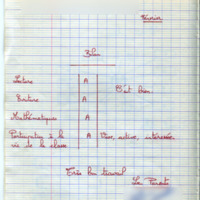 Février
Bilan
Lecture A
C'est bien.
Ecriture A
Mathématiques A
Participation à la A Vive, active, intéressée.
vie de la classe
Très bon travail
Les Parents